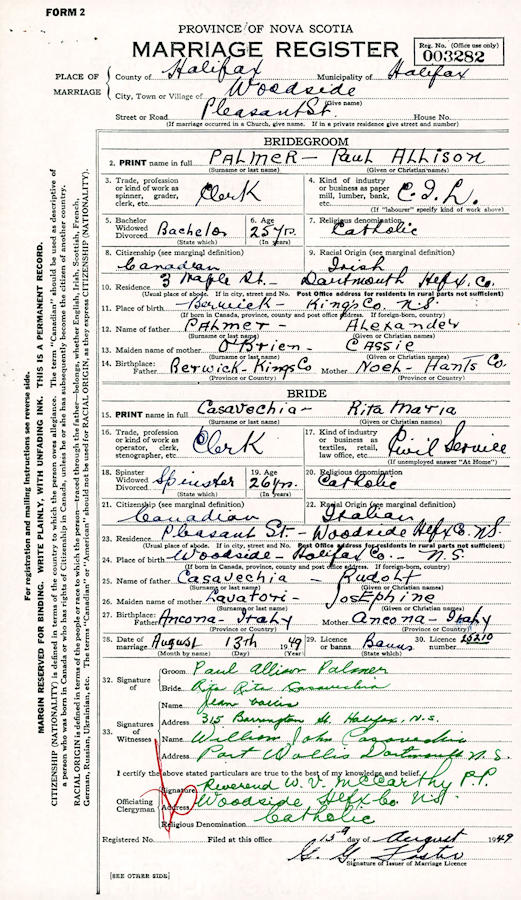 FORM 2
PROVINCE OF NOVA SCOTIA
MARRIAGE REGISTER
Reg. No. (Office use only)
003282
PLACE OF MARRIAGE
County of Halifax Municipality of Halifax
City, Town or Village of Woodside
(Give name)
Street or Road Pleasant St. House No.
(If marriage occurred in a Church, give name. If in a private residence give street and number)
BRIDEGROOM
2. PRINT name in full PALMER - Paul Allison
(Surname or last name) (Given or Christian names)
3. Trade, profession or kind of work as spinner, grader, clerk, etc. Clerk
4. Kind of industry or business as paper mill, lumber, bank, etc. C.I.L.
(If "labourer" specify kind of work above)
5. Bachelor Widowed Divorced Bachelor
(State which)
6. Age 25 yrs.
(In years)
7. Religious denomination
Catholic
8. Citizenship (see marginal definition)
Canadian
9. Racial Origin (see marginal definition)
Irish
10. Residence 3 Maple St. - Dartmouth Hfx. Co.
(Usual place of abode. If in city, street and No. Post Office address for residents in rural parts not sufficient)
11. Place of birth Berwick - Kings Co. N.S.
(If born in Canada, province, county and post office address. If foreign-born, country)
12. Name of father PALMER - Alexander
(Surname or last name) (Given or Christian names)
13. Maiden name of mother O'Brien - CASSIE
(Surname or last name) (Given or Christian names)
14. Birthplace: Father Berwick - Kings Co Mother Noel - Hants Co.
(Province or Country) (Province or Country)
BRIDE
15. PRINT name in full Casavechia - Rita Maria
(Surname or last name) (Given or Christian names)
16. Trade, profession or kind of work as operator, clerk, stenographer, etc. Clerk
17. Kind of industry or business as textiles, retail, law office, etc. Civil Service
(If unemployed answer "At Home")
18. Spinster Widowed Divorced Spinster
(State which)
19. Age 26 yrs.
(In years)
20. Religious denomination
Catholic
21. Citizenship (see marginal definition)
Canadian
22. Racial Origin (see marginal definition)
Italian
23. Residence Pleasant St - Woodside Hfx Co. N.S.
(Usual place of abode. If in city, street and No. Post Office address for residents in rural parts not sufficient)
24. Place of birth Woodside - Halifax Co. - N.S.
(If born in Canada, province, county and post office address. If foreign-born, country)
25. Name of father Casavechia - Rudolf
(Surname or last name) (Given or Christian names)
26. Maiden name of mother Lavatori - Josephine
(Surname or last name) (Given or Christian names)
27. Birthplace: Father Ancona - Italy Mother Ancona - Italy
(Province or Country) (Province or Country)
28. Date of marriage August 13th 1949
(Month by name) (Day)
29. Licence or banns Banns
30. Licence number 15210
32. Signature of
Groom Paul Allison Palmer
Bride Rita Casavechia
33. Signatures of Witnesses
Name Jean
Address 315 Barrington St. Halifax, N.S.
Name William John Casavechia
Address Port Wallis Dartmouth N.S.
I certify the above stated particulars are true to the best of my knowledge and belief.
Officiating Clergyman
Signature Reverend W. V. McCarthy P.P.
Address Woodside Hfx Co. N.S.
Religious Denomination Catholic
Registered No. Filed at this office 15th day of August 1949
G. G.
Signature of Issuer of Marriage Licence
[SEE OTHER SIDE]
For registration and mailing instructions see reverse side.
MARGIN RESERVED FOR BINDING. WRITE PLAINLY, WITH UNFADING INK. THIS IS A PERMANENT RECORD.
CITIZENSHIP (NATIONALITY) is defined in terms of the country to which the person owes allegiance. The term "Canadian" should be used as descriptive of
a person who was born in Canada or who has rights of Citizenship in Canada, unless he or she has subsequently become the citizen of another country.
RACIAL ORIGIN is defined in terms of the people or race to which the person—traced through the father—belongs, whether English, Irish, Scottish, French,
German, Russian, Ukrainian, etc. The terms "Canadian" or "American" should not be used for RACIAL ORIGIN, as they express CITIZENSHIP (NATIONALITY).